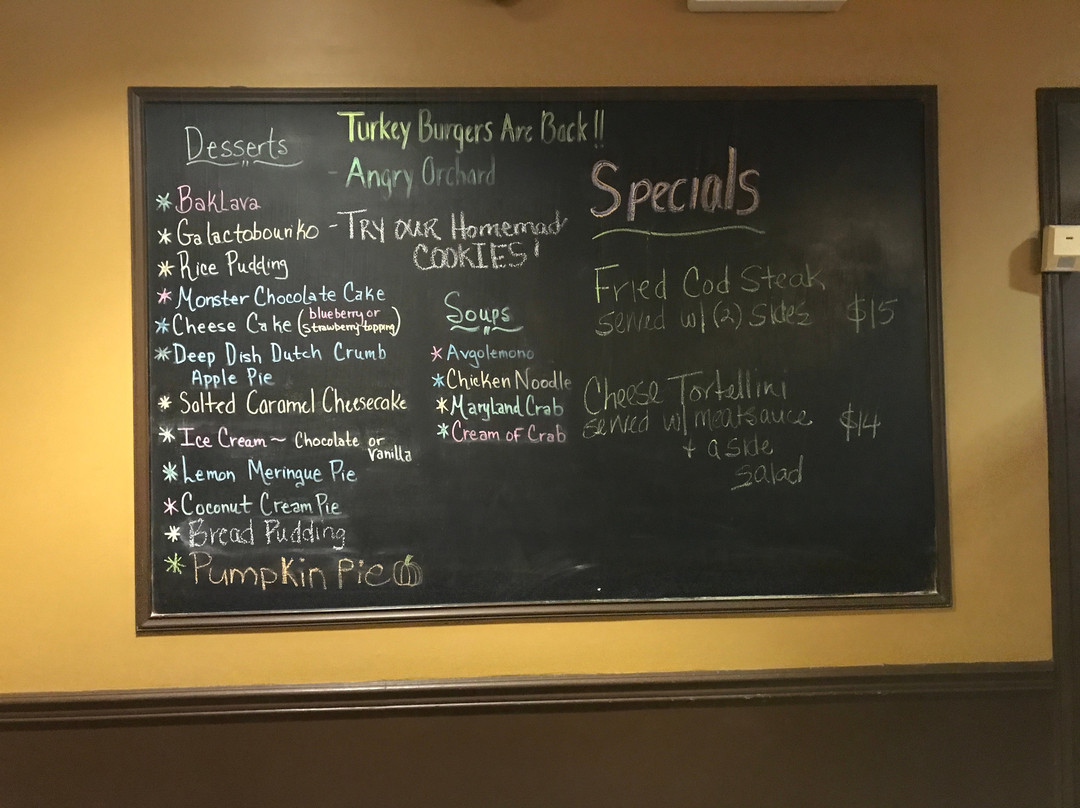 Desserts
* Baklava
* Galactobouriko
* Rice Pudding
* Monster Chocolate Cake
* Cheese Cake (blueberry or
strawberry topping)
* Deep Dish Dutch Crumb
Apple Pie
* Salted Caramel Cheesecake
* Ice Cream ~ Chocolate or
Vanilla
* Lemon Meringue Pie
* Coconut Cream Pie
* Bread Pudding
* Pumpkin Pie
Turkey Burgers Are Back!!
- Angry Orchard
- TRY OUR Homemad
COOKIES!
Soups
* Avgolemono
* Chicken Noodle
* Maryland Crab
* Cream of Crab
Specials
Fried Cod Steak
served w/ (2) sides $15
Cheese Tortellini
served w/ meatsauce $14
+ a side
salad